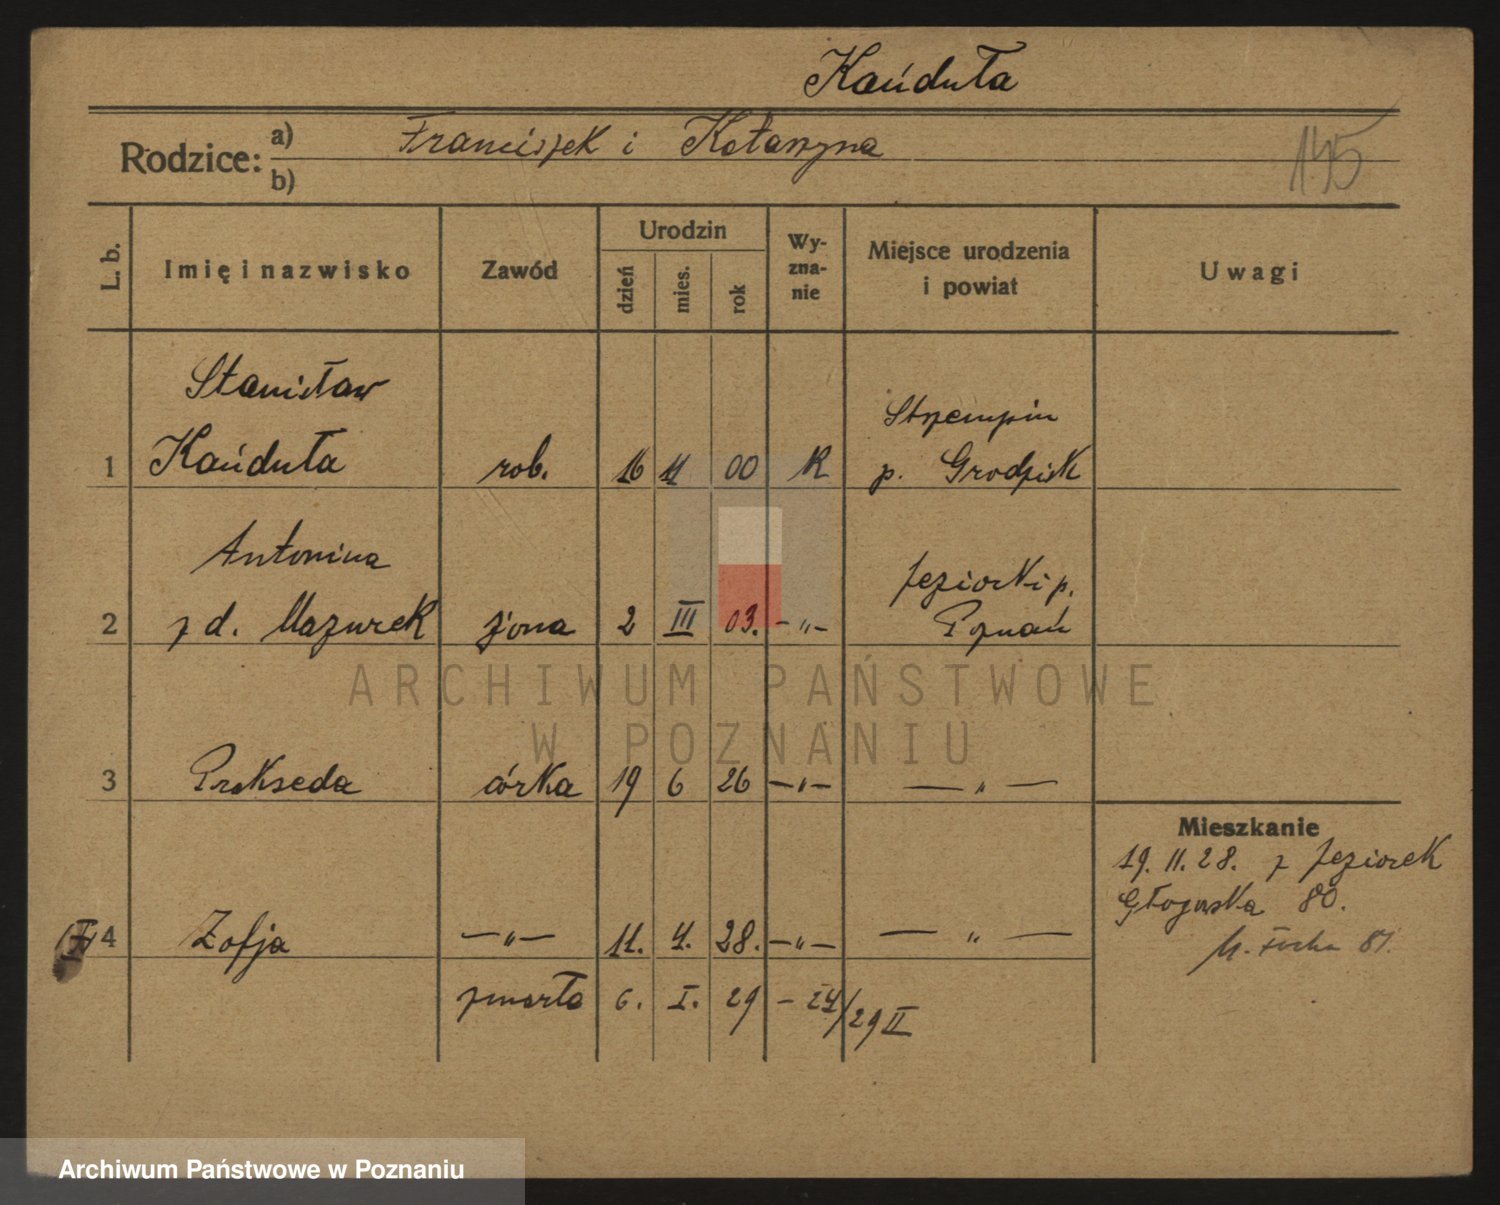 Kańduła
Rodzice: a) Franciszek i Katarzyna
b)
145
L. b. Imię i nazwisko Zawód Urodzin dzień mies. rok Wy-zna-nie Miejsce urodzenia i powiat Uwagi
Stanisław
Strzempin
1 Kańduła rob. 16 11 00 R p. Grodzisk
Antonina
Jeziorki p.
2 z d. Mazurek żona 2 III 03. -„- Poznań
3 Prakseda córka 19 6 26 -„- -„-
Mieszkanie
19. 11. 28. z Jeziorek
Głogowska 80.
4 Zofja -„- 11. 4. 28. -„- -„-
M. Focha 81.
zmarła 6. I. 29 29 II
ARCHIWUM PAŃSTWOWE
W POZNANIU
Archiwum Państwowe w Poznaniu